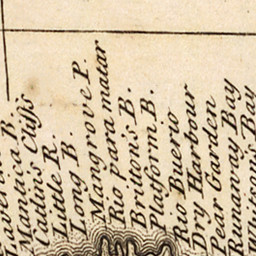 B.
Mantica B.
Cadin's Cliffs
Little R.
Long B.
Mangrove P.
Rio Para matar
Briton's B.
Platform B.
Rio Buerio
Dry Harbour
Pear Garden
Runaway Bay
Bay